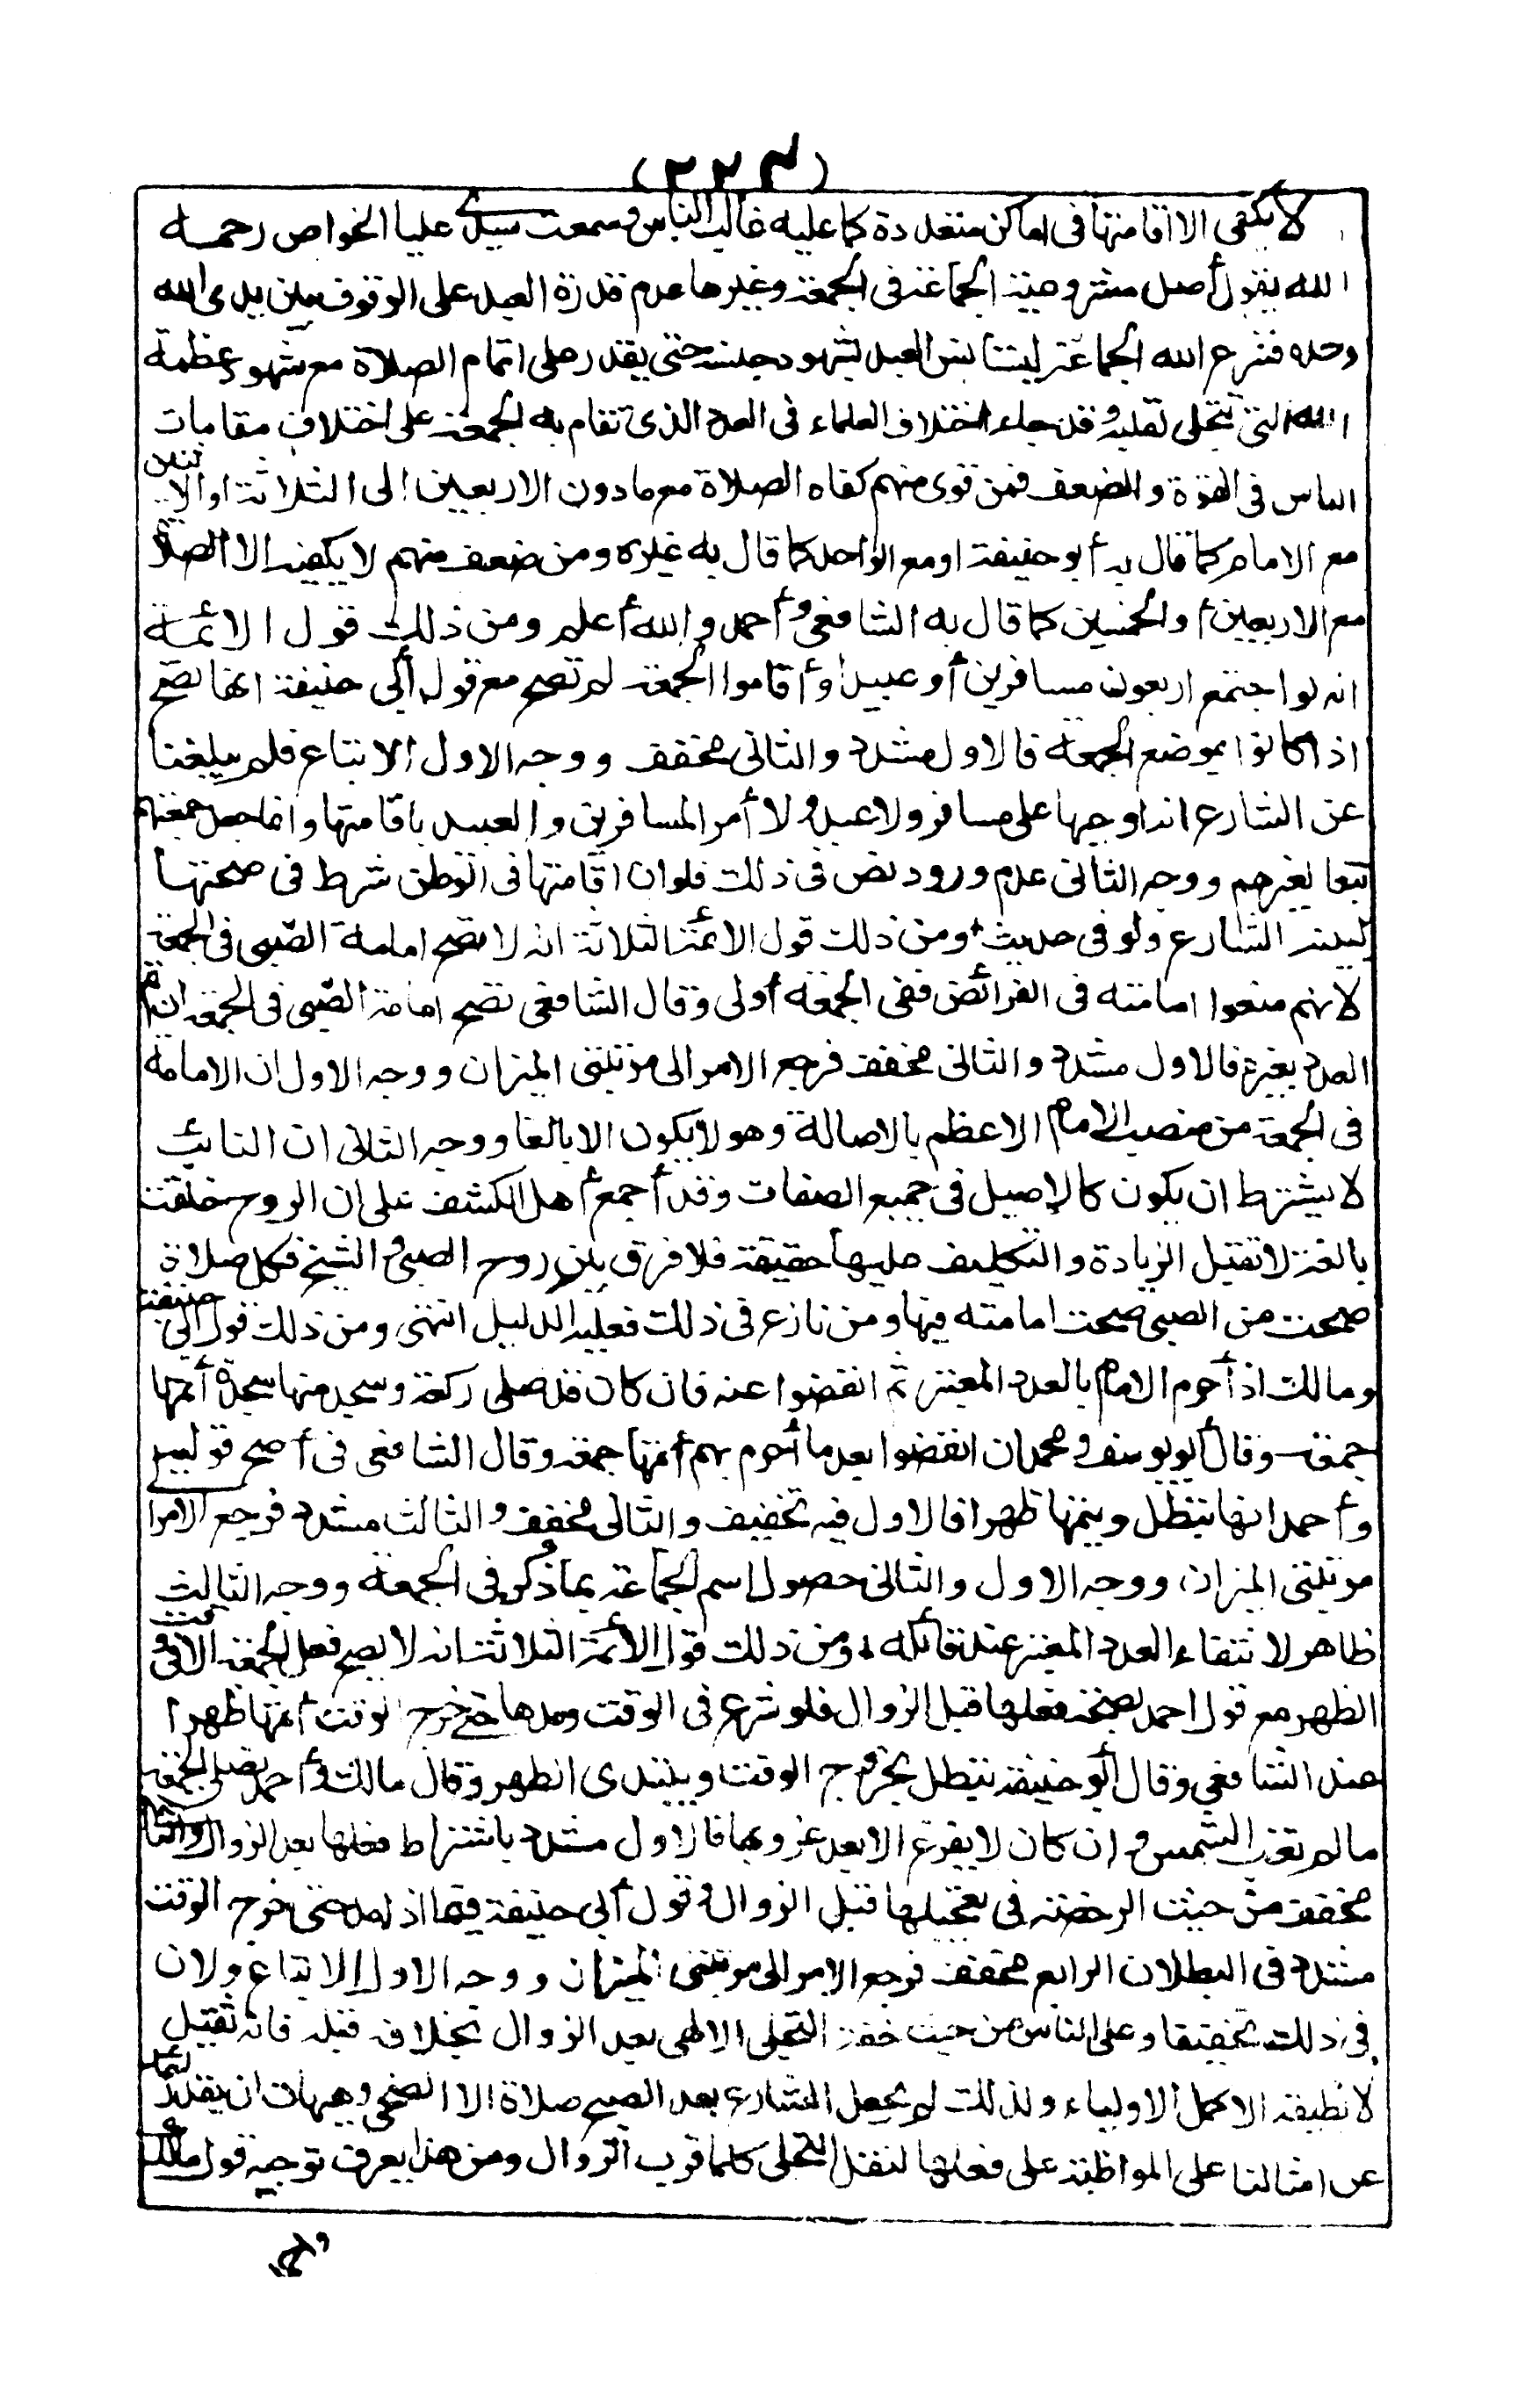 (٢٢٤)
لا يكفي الا اقامتها في اماكن متعددة كما عليه غالب الناس وسمعت سيدى عليا الخواص رحمه
الله يقول أصل مشروعية الجماعة في الجمعة وغيرها عدم قدرة العبد على الوقوف بين يدى الله
وحده فشرع الله الجماعة ليستأنس العبد بشهود جنسه حتى يقدر على اتمام الصلاة مع شهود عظمة
الله التي تتجلى لقلبه وقد جاء اختلاف العلماء في العدد الذى تقام به الجمعة على اختلاف مقامات
الناس في القوة والضعف فمن قوى منهم كفاه الصلاة مع مادون الاربعين الى الثلاثة او الاثنين
مع الامام كما قال به أبو حنيفة او مع الواحد كما قال به غيره ومن ضعف منهم لا يكفيه الا الصلاة
مع الاربعين أو الخمسين كما قال به الشافعي وأحمد والله أعلم ومن ذلك قول الائمة
انه لو اجتمع اربعون مسافرين أو عبيدا وأقاموا الجمعة لم تصح مع قول أبى حنيفة انها تصح
اذا كانوا بموضع الجمعة فالاول مشدد والثانى مخفف ووجه الاول الاتباع فلم يبلغنا
عن الشارع انه اوجبها على مسافر ولا عبد ولا أمر المسافرين والعبيد باقامتها وانما جعل جمعتهم
تبعا لغيرهم ووجه الثانى عدم ورود نص في ذلك فلو ان اقامتها في التوطن شرط في صحتها
لبينه الشارع ولو في حديث ومن ذلك قول الائمة الثلاثة انه لا تصح امامة الصبى في الجمعة
لانهم منعوا امامته في الفرائض ففي الجمعة أولى وقال الشافعي تصح امامة الصبى في الجمعة ان تم
العدد بغيره فالاول مشدد والثانى مخفف فرجع الامر الى مرتبتى الميزان ووجه الاول ان الامامة
في الجمعة من منصب الامام الاعظم بالاصالة وهو لا يكون الا بالغا ووجه الثانى ان النائب
لا يشترط ان يكون كالاصيل في جميع الصفات وقد أجمع أهل الكشف على ان الروح خلقت
بالغة لا تقبل الزيادة والتكليف عليها حقيقة فلا فرق بين روح الصبى والشيخ فكل صلاة
صحت من الصبى صحت امامته فيها ومن نازع في ذلك فعليه الدليل انتهى ومن ذلك قول أبى حنيفة
ومالك اذ أحرم الامام بالعدد المعتبر ثم انفضوا عنه فان كان قد صلى ركعة وسجد منها سجدة أتمها
جمعة وقال أبو يوسف ومحمد ان انفضوا بعد ما أحرم بهم أتمها جمعة وقال الشافعي في أصح قوليه
وأحمد انها تبطل ويتمها ظهرا فالاول فيه تخفيف والثانى مخفف والثالث مشدد فرجع الامر ا
مرتبتى الميزان ووجه الاول والثانى حصول اسم الجماعة بما ذكر في الجمعة ووجه الثالث
ظاهر لانتفاء العدد المعتبر عند قائله ومن ذلك قول الأئمة الثلاثة انه لا يصح فعل الجمعة الا في وقت
الظهر مع قول احمد بصحة فعلها قبل الزوال فلو شرع في الوقت ومدها حتى خرج الوقت أتمها ظهرا
عند الشافعي وقال أبو حنيفة تبطل بخروج الوقت ويبتدى الظهر وقال مالك وأحمد يصلى الجمعة
مالم تغب الشمس وان كان لا يفرغ الا بعد غروبها فالاول مشدد باشتراط فعلها بعد الزوال والثانى
مخفف من حيث الرخصة في تعجيلها قبل الزوال وقول أبى حنيفة فيما اذا مد حتى خرج الوقت
مشدد في البطلان الرابع مخفف فرجع الامر الى مرتبتى الميزان ووجه الاول الاتباع ولان
في ذلك تخفيفا وعلى الناس من حيث خفة التجلى الالهى بعد الزوال بخلاف قبله فانه ثقيل
لا تطيقه الا كمل الاولياء ولذلك لم يجعل الشارع بعد الصبح صلاة الا الضحى وهيهات ان يقدر
عن امثالنا على المواظبة على فعلها لثقل التجلى كلما قرب الزوال ومن هنا يعرف توجيه قول مالك